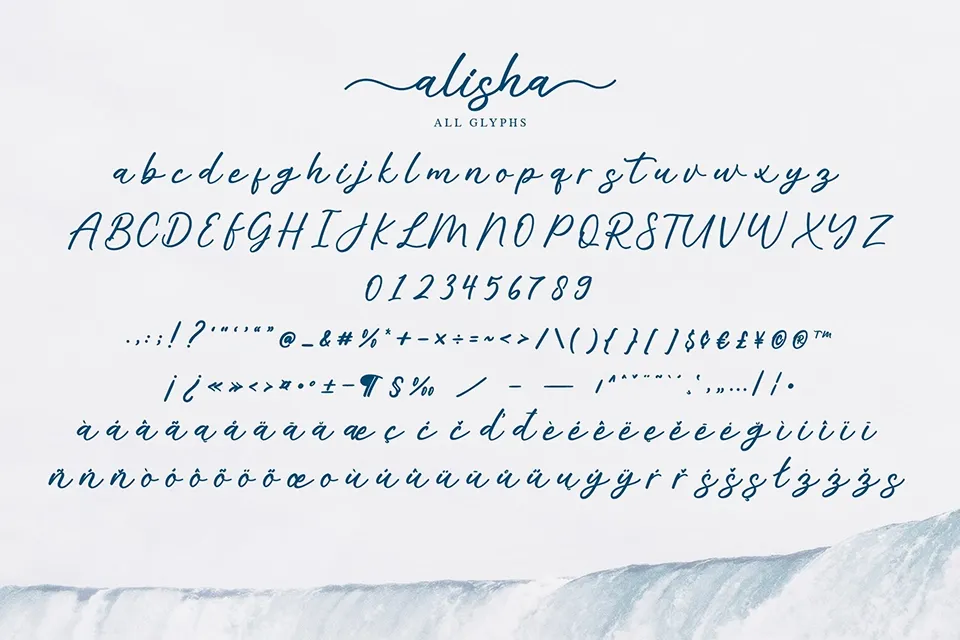 alisha
ALL GLYPHS
a b c d e f g h i j k l m n o p q r s t u v w x y z
A B C D E F G H I J K L M N O P Q R S T U V W X Y Z
0 1 2 3 4 5 6 7 8 9
. , : ; ! ? ' " ‘ ’ “ ” @ _ & # % * + - × ÷ = ~ < > / \ ( ) { } [ ] $ ¢ € £ ¥ © ® ™
¡ ¿ « » ‹ › ¤ • ° ± − ¶ § ‰ ⁄ – — … | ¦ ·
à á â ã ą å ä ā ă æ ç ć č ď đ è é ê ë ę ě ē ė ğ ì í î ï i
ñ ń ň ò ó ô õ ö ő œ o ù ú û ü ū ů ű ų ý ÿ ŕ ř ś š ş ł ż ź ž ș